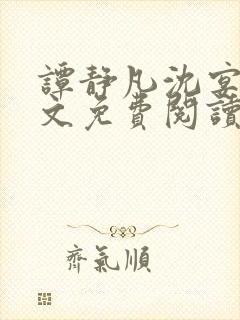 譚靜凡沈宴
文免費閱讀
齊氣順